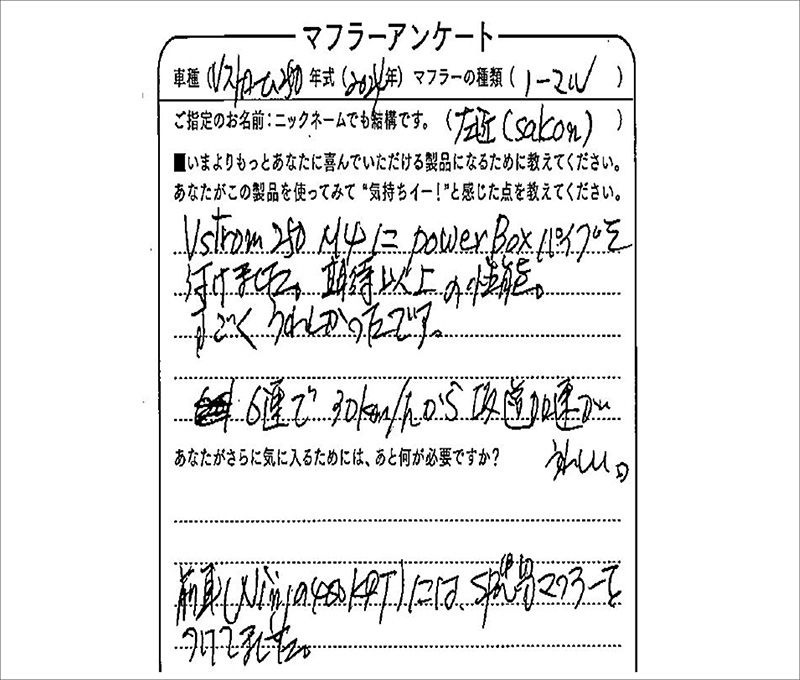 マフラーアンケート
車種（Vストローム250 年式（2024年）マフラーの種類（ノーマル ）
ご指定のお名前：ニックネームでも結構です。（左近(sakon) ）
■いまよりもっとあなたに喜んでいただける製品になるために教えてください。
あなたがこの製品を使ってみて“気持ちイー！”と感じた点を教えてください。
Vstrom 250 M4に powerBoxパイプを
付けました。期待以上の性能。
すごくうれしかったです。
6速で30km/hから坂道加速が
うれしい。
あなたがさらに気に入るためには、あと何が必要ですか？
前車(Ninja400 KRT)には、SP忠男マフラーを
つけてました。